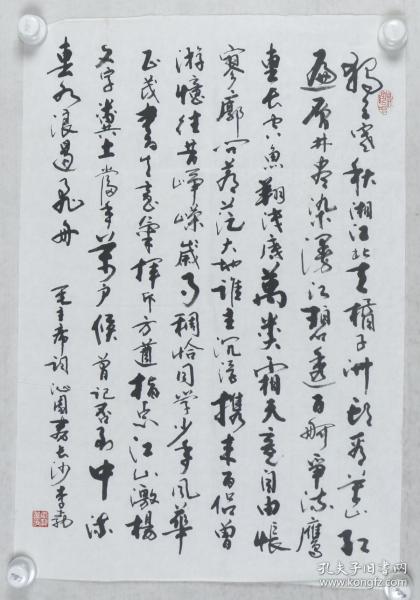 独立寒秋湘江北去橘子洲头看万山红
遍层林尽染漫江碧透百舸争流鹰
击长空鱼翔浅底萬类霜天竞自由怅
寥廓问苍茫大地谁主沉浮携来百侣曾
游忆往昔峥嵘岁月稠恰同学少年风华
正茂书生意气挥斥方遒指点江山激扬
文字粪土当年万户侯曾记否到中流
击水浪遏飞舟
毛主席词沁园春长沙
孔夫子旧书网
www.kongfz.com